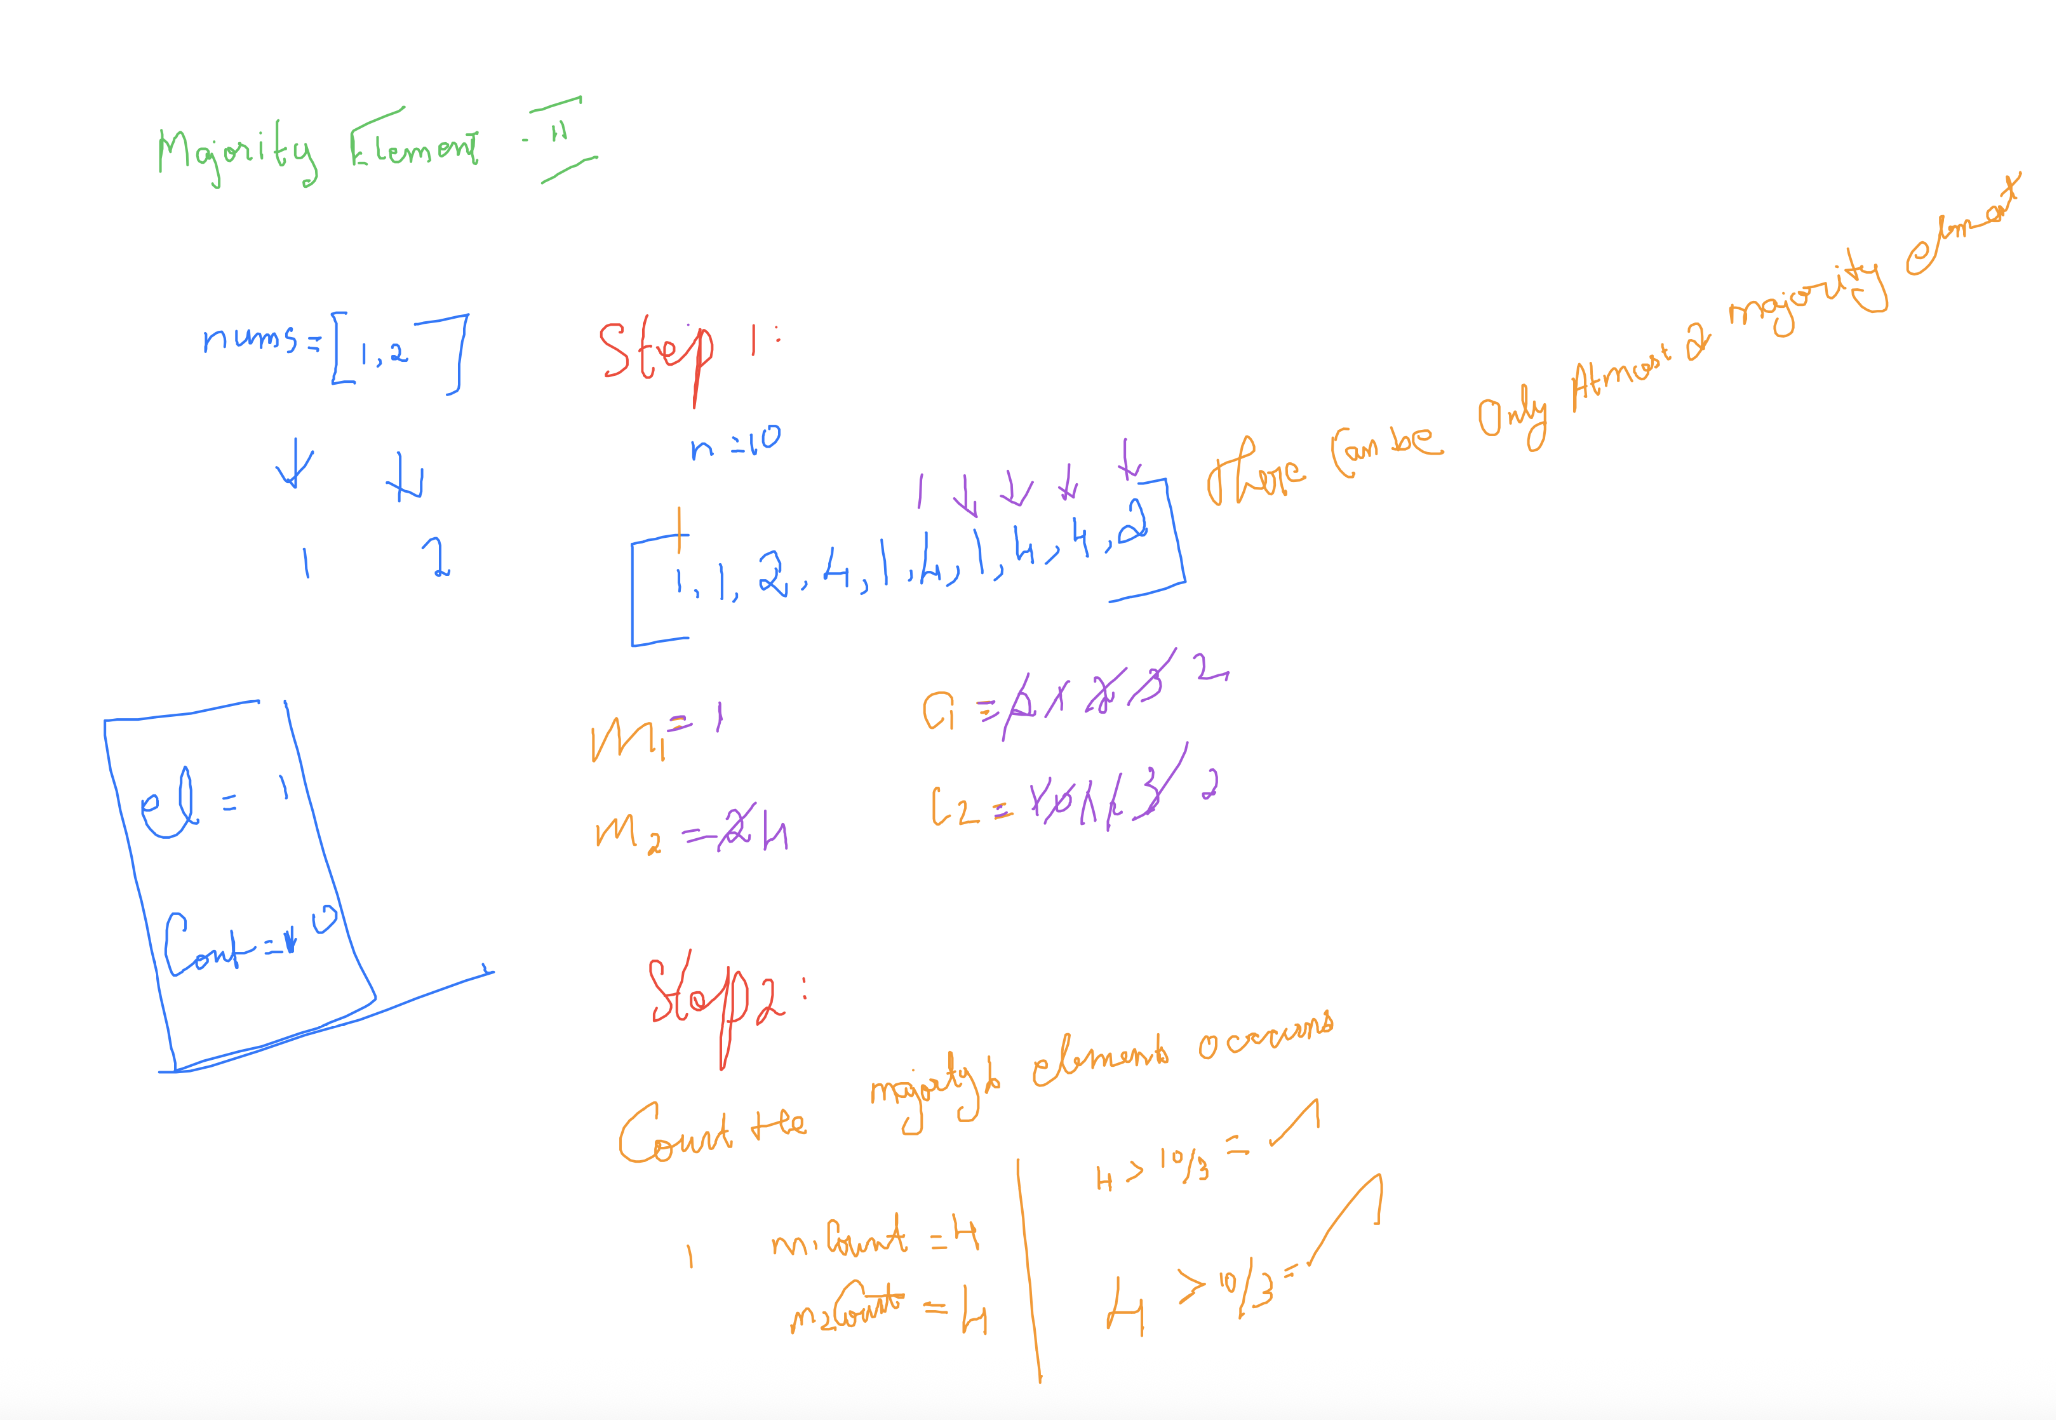 Majority Element - II
nums = [1,2]
1 2
el = 1
Cont = 0
Step 1:
n = 10
[1, 1, 2, 4, 1, 4, 1, 4, 4, 2]
There Can be Only Atmost 2 majority element
m1 = 1
C1 = 2 1 2 3 2
m2 = 2 4
C2 = 1 0 1 2 3 2
Step 2:
Count the majority elements occurs
1 m1 Count = 4
m2 Count = 4
4 > 10/3 = ✓
4 > 10/3 = ✓